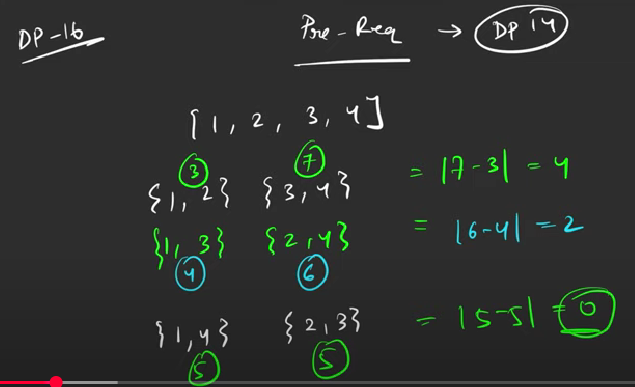 DP-16 Pre-Req → DP 14
[1, 2, 3, 4]
3 7
{1, 2} {3, 4} = |7-3| = 4
{1, 3} {2, 4} = |6-4| = 2
4 6
{1, 4} {2, 3} = |5-5| = 0
5 5